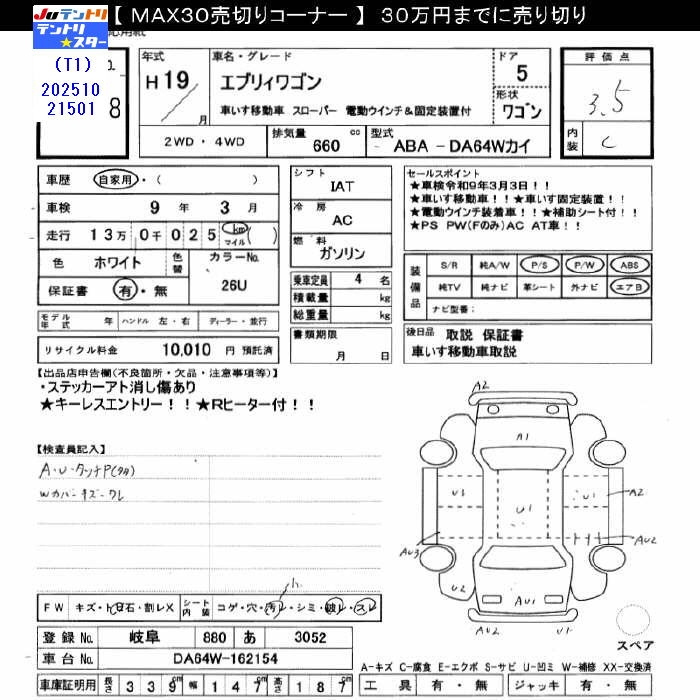 【 MAX30売切りコーナー 】 30万円までに売り切り
Juテントリ
テントリ★スター
(T1)
202510
21501
8
年式
H19/ 月
車名・グレード
エブリィワゴン
車いす移動車 スローパー 電動ウインチ&固定装置付
ドア
5
形状
ワゴン
評価点
3.5
内装
C
2WD・4WD
排気量 660 cc
型式 ABA-DA64Wカイ
車歴 自家用・( )
車検 9 年 3 月
走行 13万 0千 025 km マイル ( )
色 ホワイト 色替 カラーNo.
26U
保証書 有・無
シフト
IAT
冷房
AC
燃料
ガソリン
乗車定員 4 名
積載量 kg
総重量 kg
セールスポイント
★車検令和9年3月3日!!
★車いす移動車!!★車いす固定装置!!
★電動ウインチ装着車!!★補助シート付!!
★PS PW(Fのみ)AC AT車!!
装備品
S/R 純A/W P/S P/W ABS
純TV 純ナビ 革シート 外ナビ エアB
ナビ型番:
モデル年式 年 ハンドル 左・右 ディーラー・並行
リサイクル料金 10,010 円 預託済
書類期限
月 日
後日品 取説 保証書
車いす移動車取説
【出品店申告欄(不良箇所・欠品・注意事項等)】
・ステッカーアト消し傷あり
★キーレスエントリー!!★Rヒーター付!!
【検査員記入】
A・U・タッチP(タタ)
Wカバーキズ・ワレ
A2
A1
U1
U1
U1
A2
AU3
AU2
U2
AU1
AU2
U1
スペア
FW キズ・ヒ石・割レX シート内装 コゲ・穴・汚レ・シミ・破レ・スレ
登録No. 岐阜 880 あ 3052
車台No. DA64W-162154
車庫証明用 長さ 339cm 幅 147cm 高さ 187cm
A-キズ C-腐食 E-エクボ S-サビ U-凹ミ W-補修 XX-交換済
工具 有・無 ジャッキ 有・無